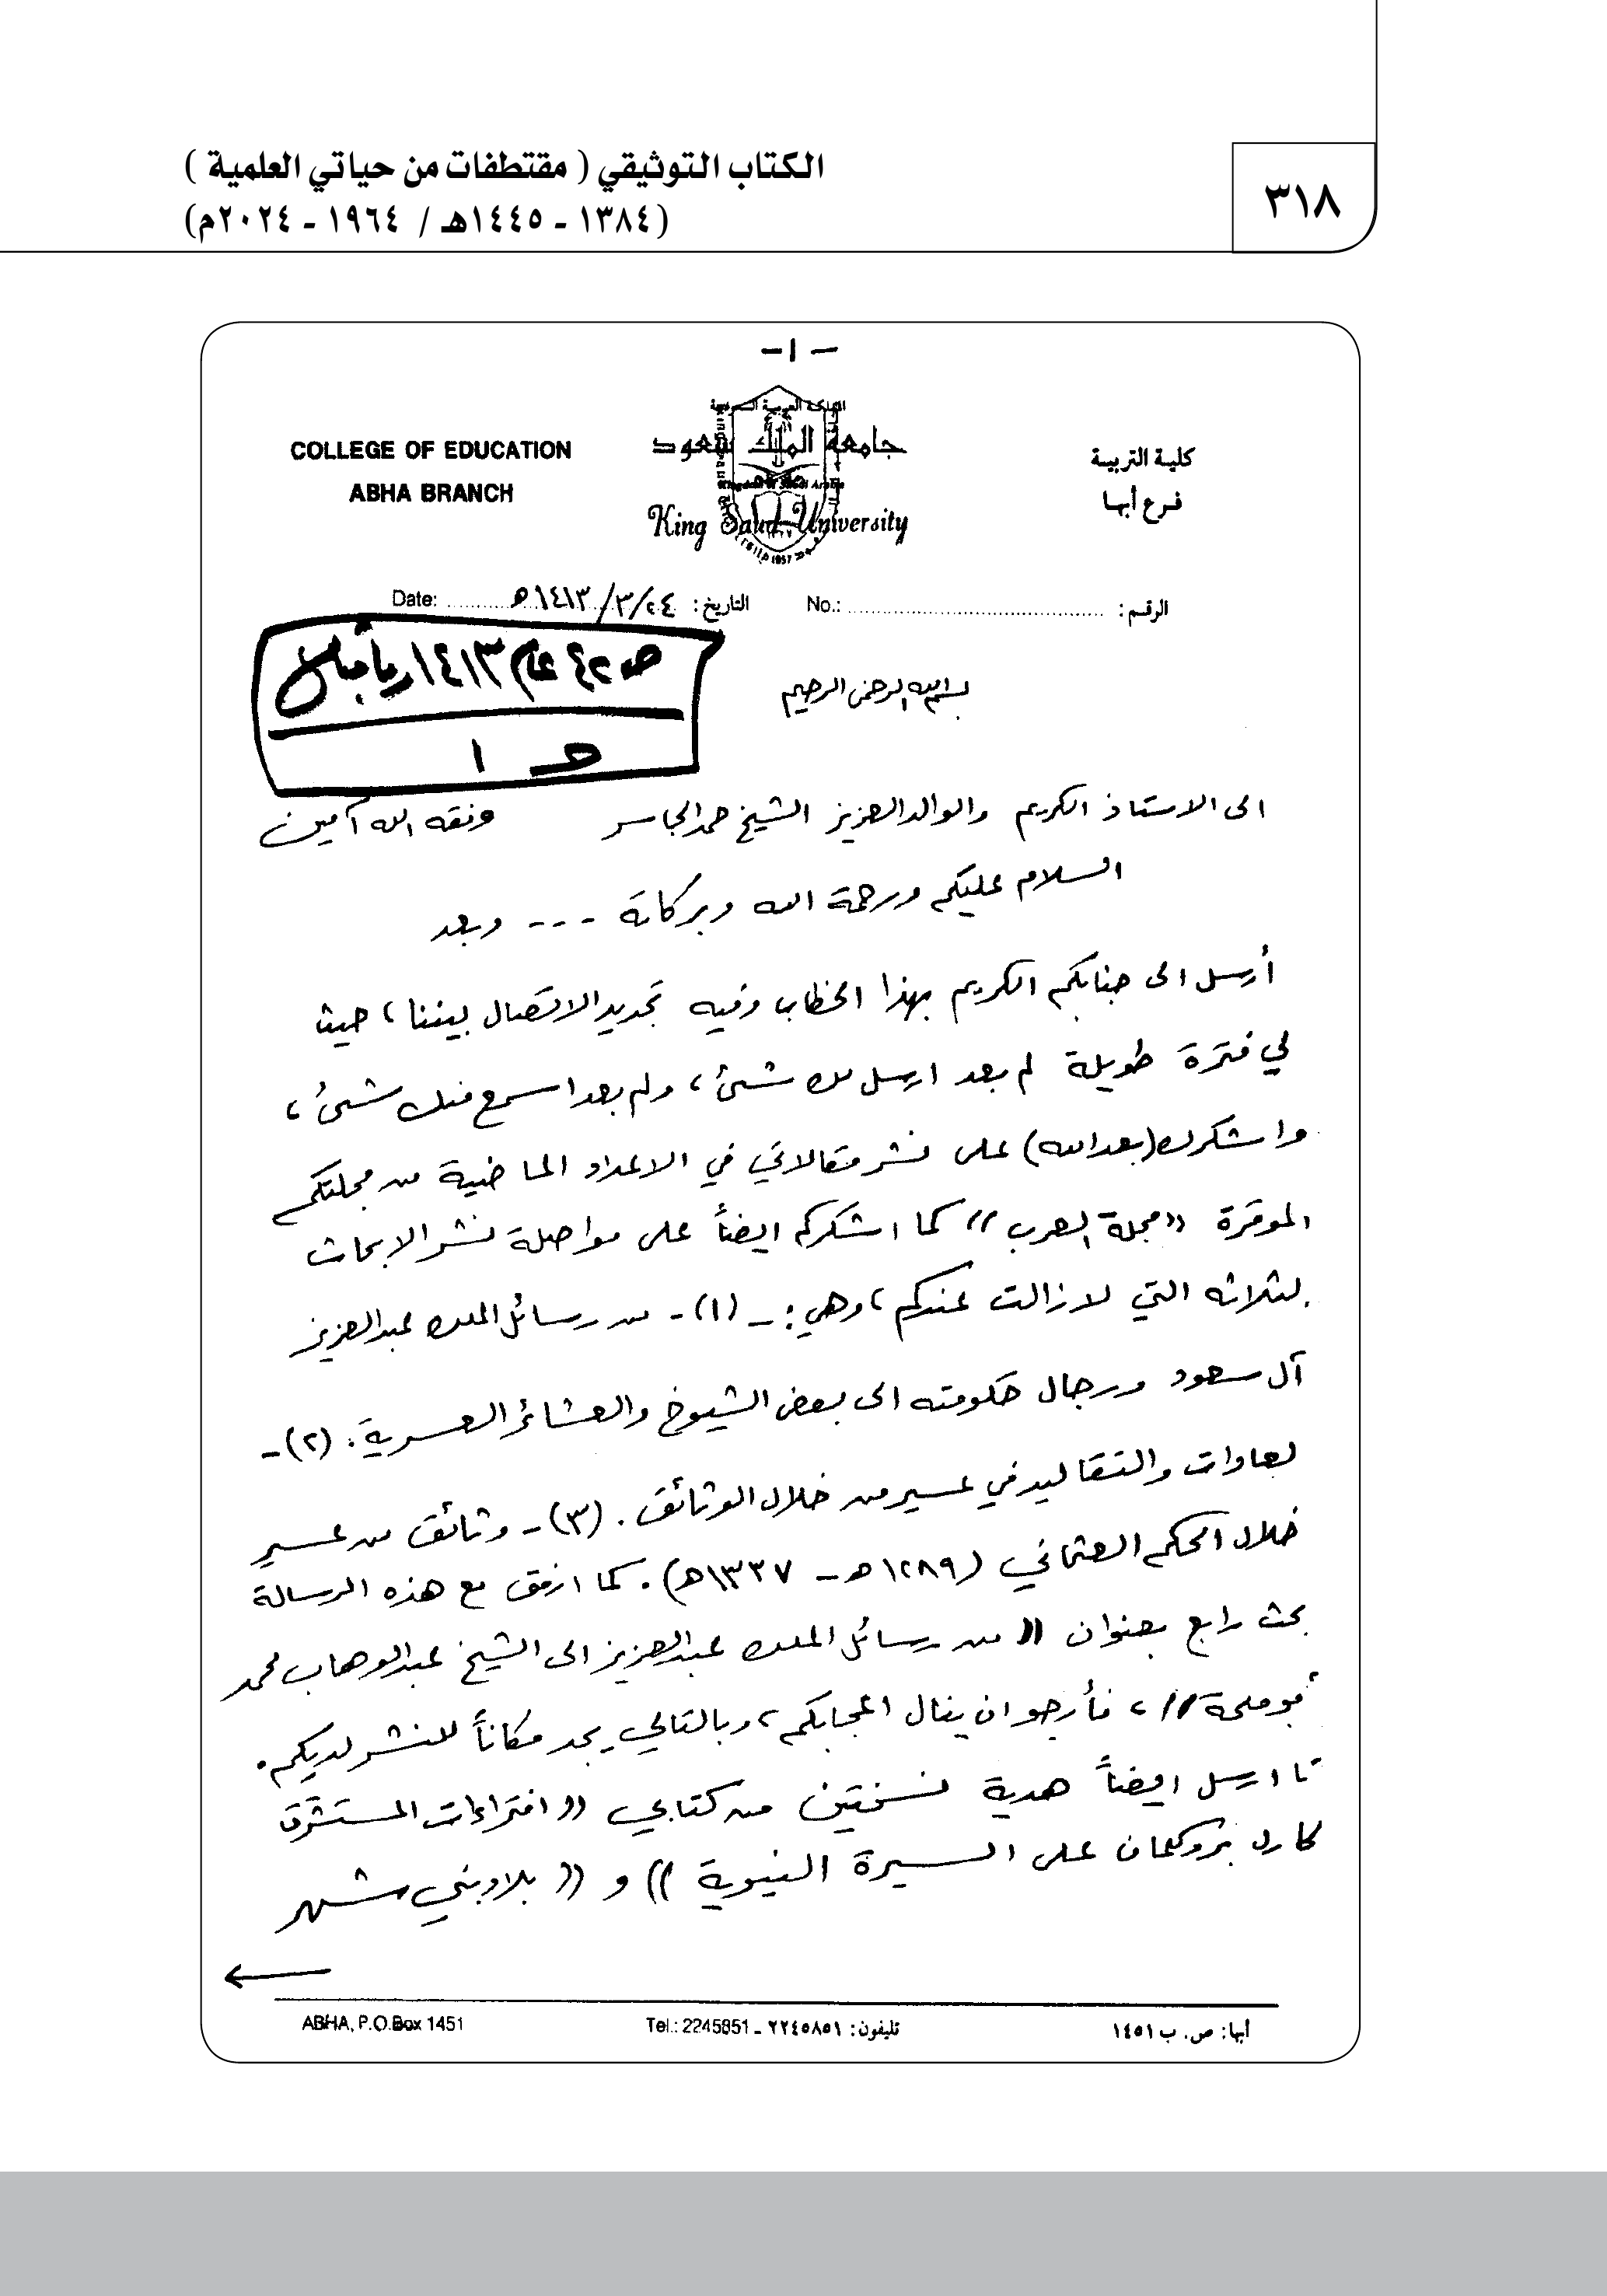 الكتاب التوثيقي ( مقتطفات من حياتي العلمية )
(١٣٨٤ - ١٤٤٥هـ / ١٩٦٤ - ٢٠٢٤م)
٣١٨
-١-
كلية التربية
فرع أبها
المملكة العربية السعودية
جامعة الملك سعود
King Saud University
COLLEGE OF EDUCATION
ABHA BRANCH
الرقم: No.:
التاريخ: ٢٤/٣/١٤١٣هـ Date:
بسم الله الرحمن الرحيم
عام ١٤١٣
١
الى الاستاذ الكريم والوالد العزيز الشيخ حمد الجاسر وفقه الله آمين
السلام عليكم ورحمة الله وبركاته --- وبعد
أرسل الى جنابكم الكريم بهذا الخطاب وفيه تجديد الاتصال بيننا، حيث
لي فترة طويلة لم بعد ارسل لك شئ، ولم بعد اسمع منك شئ،
واشكرك (بعد الله) على نشر مقالاتي في الاعداد الماضية من مجلتكم
الموقرة «مجلة العرب» كما اشكركم ايضاً على مواصلة نشر الابحاث
لثلاثه التي لا زالت عندكم، وهي: - (١)- من رسائل الملك عبدالعزيز
آل سعود ورجال حكومته الى بعض الشيوخ والعشائر العسيرية. (٢)-
لعادات والتقاليد في عسير من خلال الوثائق. (٣)- وثائق من عسير
خلال الحكم العثماني (١٢٨٩هـ - ١٣٣٧هـ). كما ارفق مع هذه الرسالة
بحث رابع بعنوان «من رسائل الملك عبدالعزيز الى الشيخ عبدالوهاب محمد
أبو ملحة»، فأرجو ان ينال اعجابكم، وبالتالي يجد مكاناً للنشر لديكم.
ارسل ايضاً هدية نسختين من كتابي «افتراءات المستشرق
كارل بروكلمان على السيرة النبوية» و «بلاد بني شهر
أبها: ص. ب ١٤٥١
تليفون: ٢٢٤٥٨٥١ - Tel.: 2245851
ABHA, P.O.Box 1451